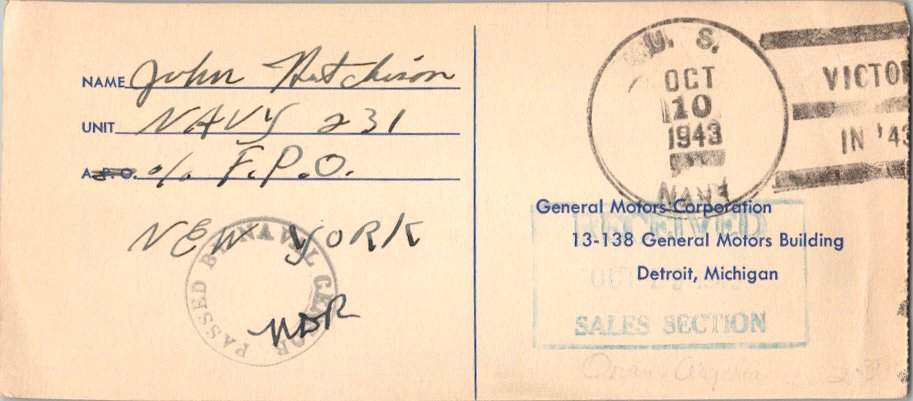 NAME John Hutchison
UNIT NAVY 231
A.P.O. c/o F.P.O.
NEW YORK
PASSED BY NAVAL CENSOR
U. S.
OCT
10
1943
NAVY
VICTO
IN '43
General Motors Corporation
13-138 General Motors Building
Detroit, Michigan
RECEIVED
OCT
SALES SECTION
Oran, Algeria